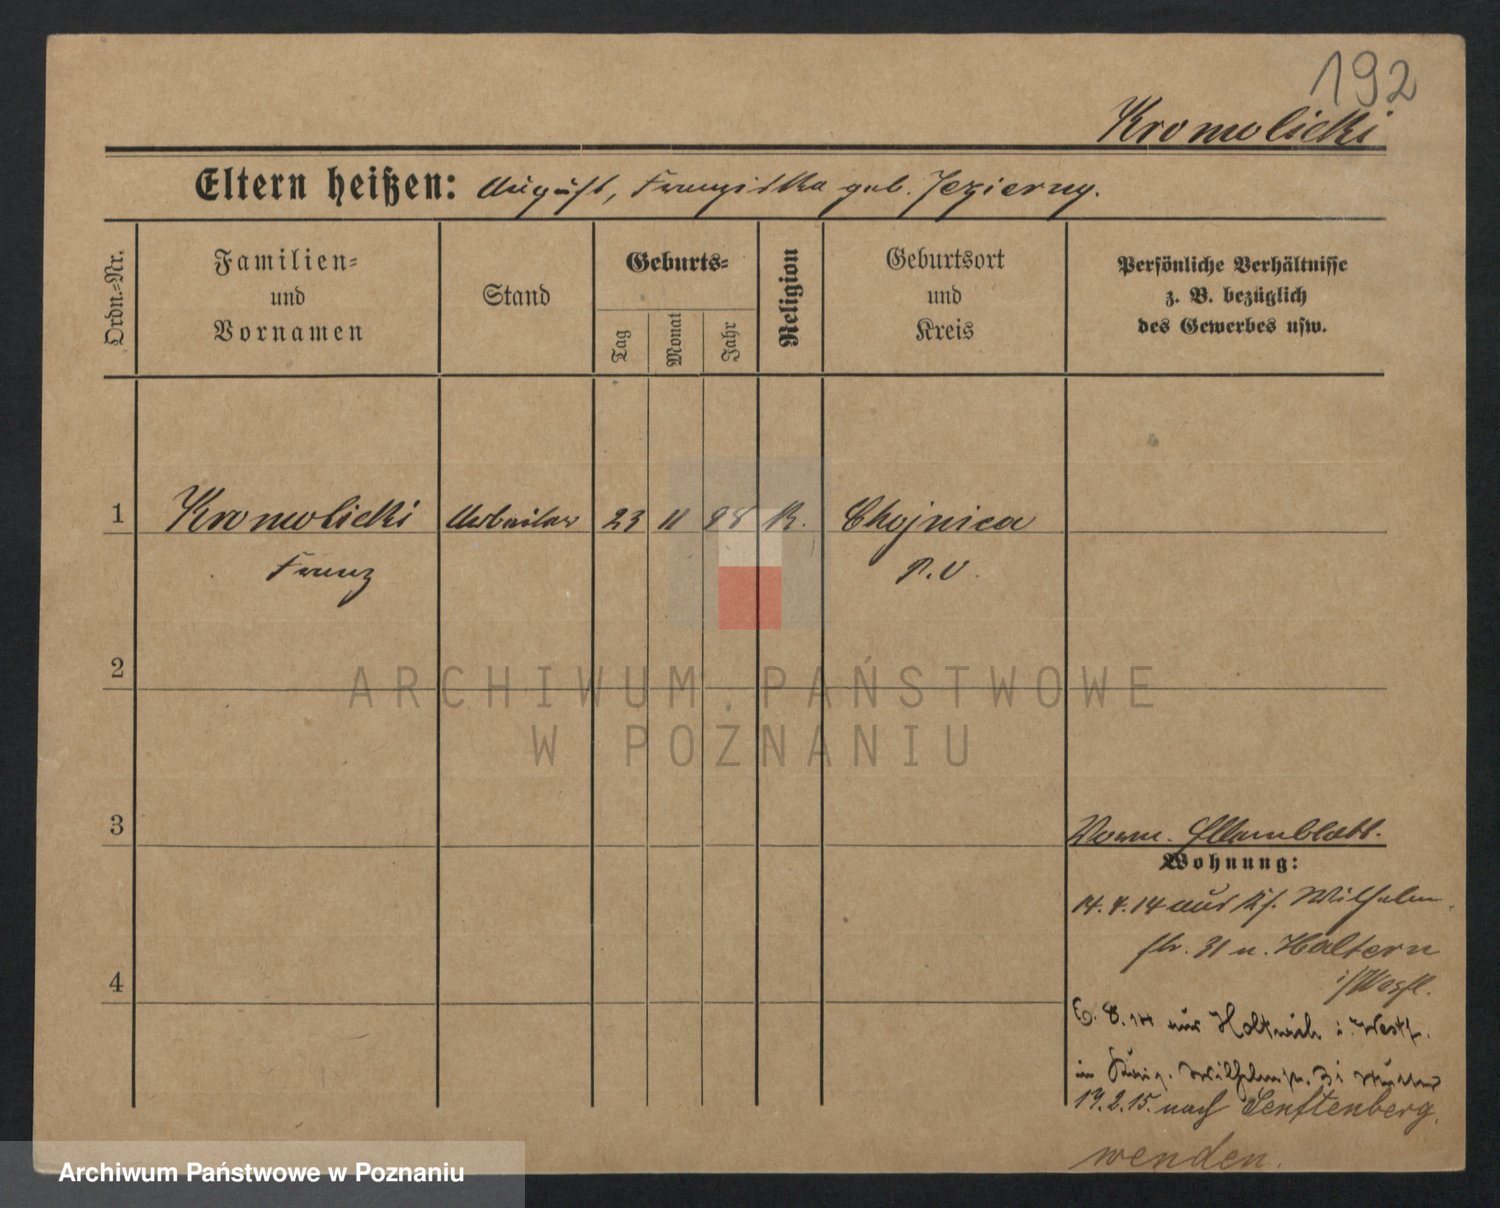 192
Kromolicki
Eltern heißen: August, Franziska geb. Jezierny.
Ordn.-Nr.
Familien-
und
Vornamen
Stand
Geburts-
Tag
Monat
Jahr
Religion
Geburtsort
und
Kreis
Persönliche Verhältnisse
z. B. bezüglich
des Gewerbes usw.
1 Kromolicki Arbeiter 23 11 98 K. Chojnica
Franz P. O.
2
ARCHIWUM PAŃSTWOWE
W POZNANIU
3
Wohnung:
14.4.14 aus Wilhelm
str. 31 n. Haltern
i/Westf.
4
6. 8. 14 aus i. Westf.
in Wilhelmstr. 31 Mutter
19.2.15. nach Senftenberg.
wenden.
Archiwum Państwowe w Poznaniu